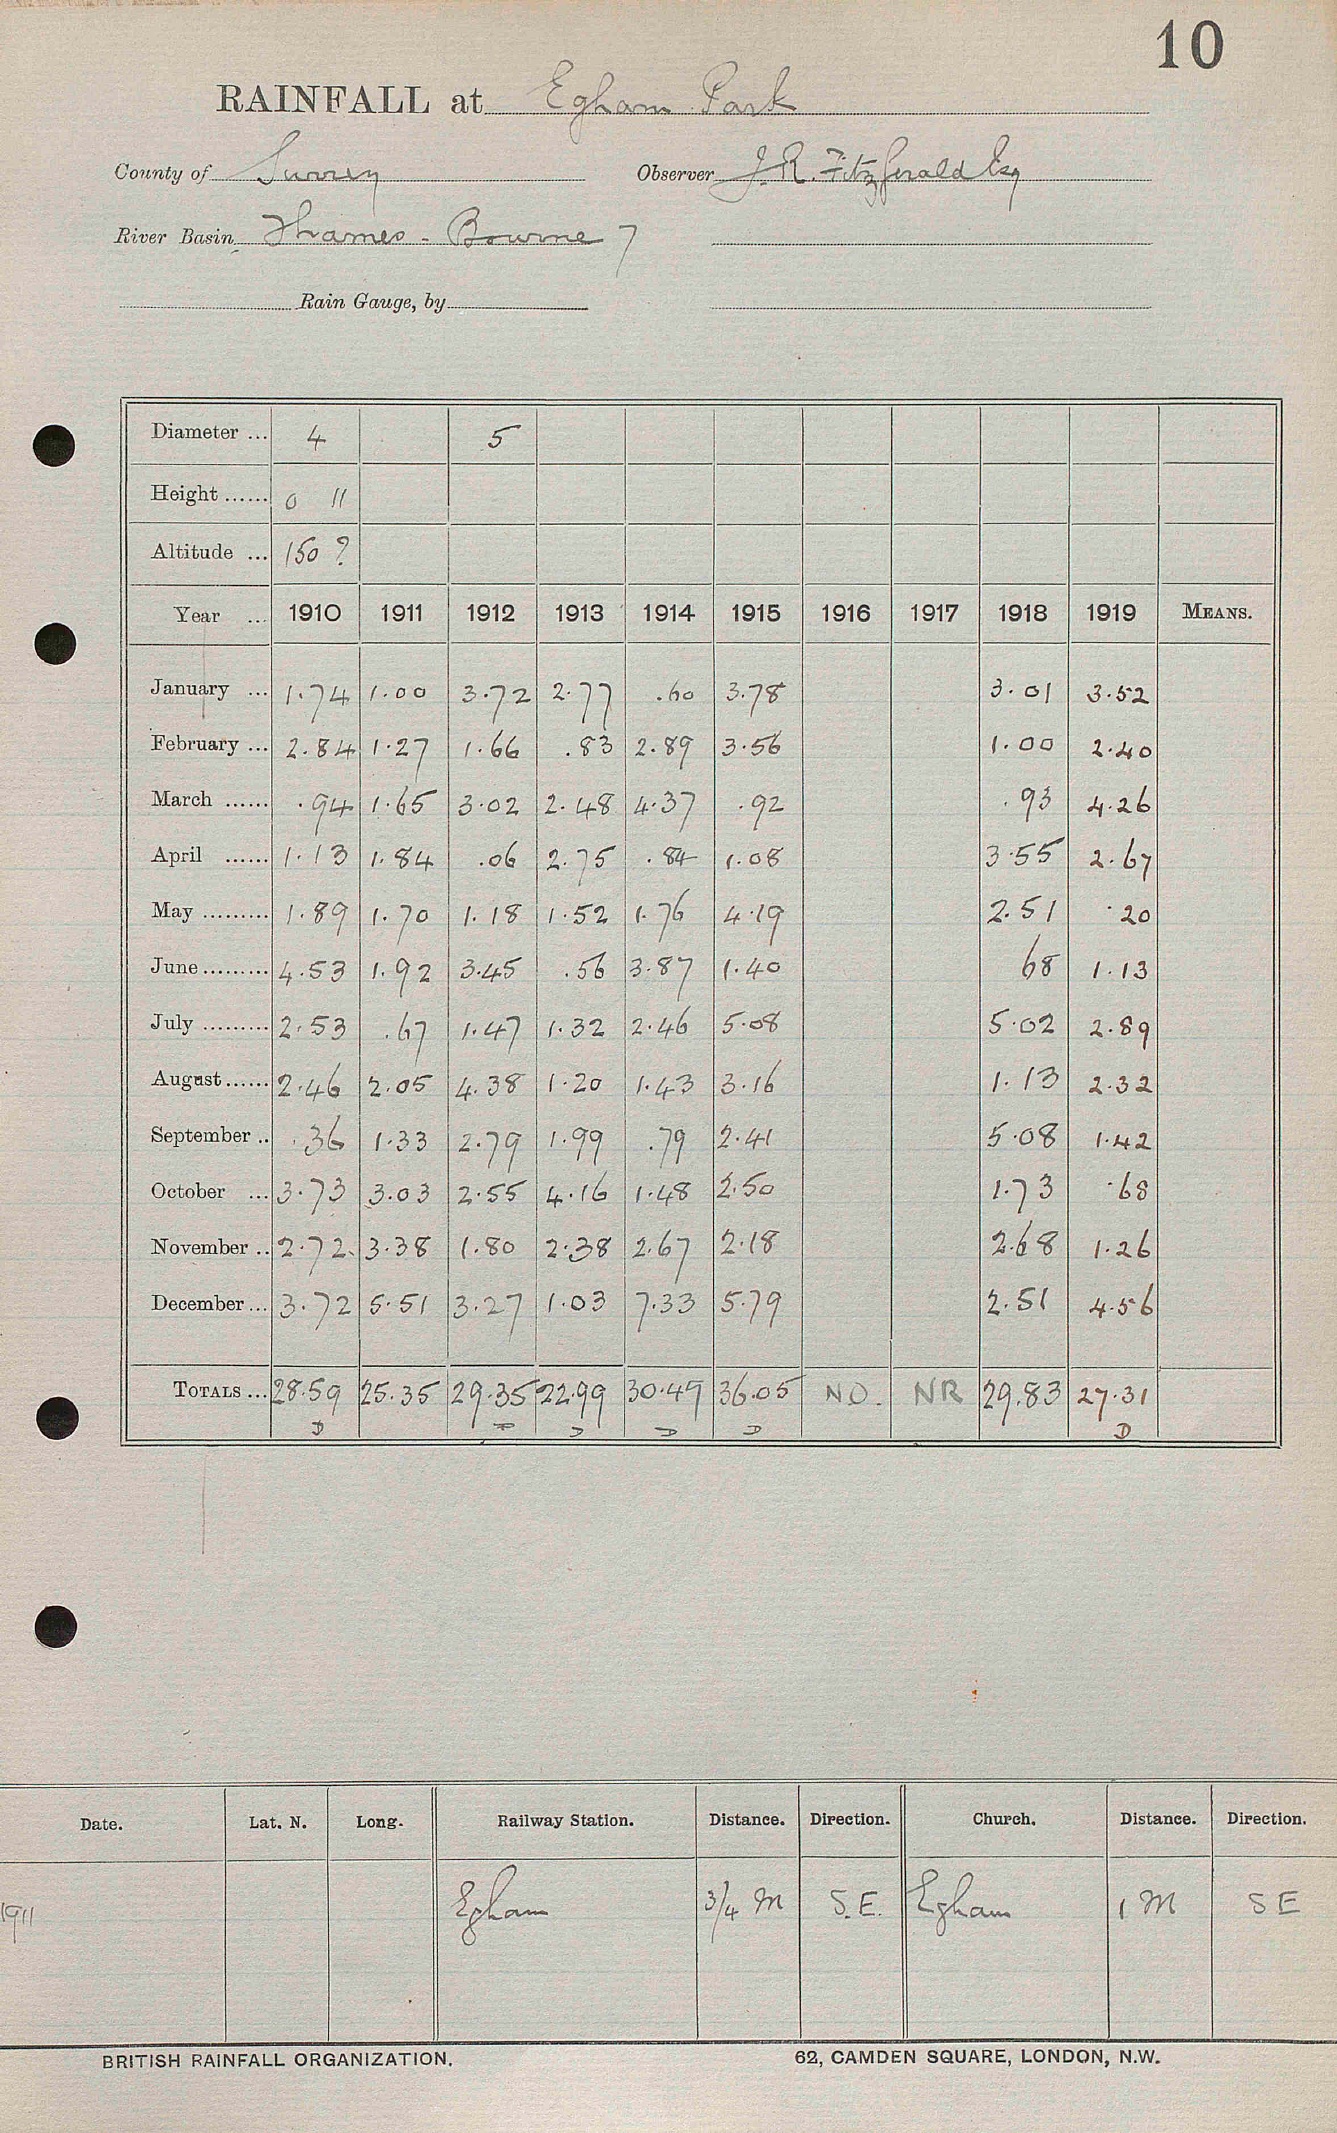 10
RAINFALL at Egham Park
County of Surrey Observer J. R. Fitzgerald Esq
River Basin Thames - Bourne 7
Rain Gauge, by
Diameter ... 4 5
Height ...... 0 11
Altitude ... 150 ?
Year ... 1910 1911 1912 1913 1914 1915 1916 1917 1918 1919 MEANS.
January ... 1.74 1.00 3.72 2.77 .60 3.78 3.01 3.52
February ... 2.84 1.27 1.66 .83 2.89 3.56 1.00 2.40
March ...... .94 1.65 3.02 2.48 4.37 .92 .93 4.26
April ...... 1.13 1.84 .06 2.75 .84 1.08 3.55 2.67
May ......... 1.89 1.70 1.18 1.52 1.76 4.19 2.51 .20
June ......... 4.53 1.92 3.45 .56 3.87 1.40 68 1.13
July ......... 2.53 .67 1.47 1.32 2.46 5.08 5.02 2.89
August ...... 2.46 2.05 4.38 1.20 1.43 3.16 1.13 2.32
September .. .36 1.33 2.79 1.99 .79 2.41 5.08 1.42
October ... 3.73 3.03 2.55 4.16 1.48 2.50 1.73 .68
November .. 2.72 3.38 1.80 2.38 2.67 2.18 2.68 1.26
December ... 3.72 5.51 3.27 1.03 7.33 5.79 2.51 4.56
TOTALS ... 28.59 25.35 29.35 22.99 30.49 36.05 NO. NR 29.83 27.31
D D D D D D
Date. Lat. N. Long. Railway Station. Distance. Direction. Church. Distance. Direction.
1911 Egham 3/4 M S.E. Egham 1 M S E
BRITISH RAINFALL ORGANIZATION. 62, CAMDEN SQUARE, LONDON, N.W.